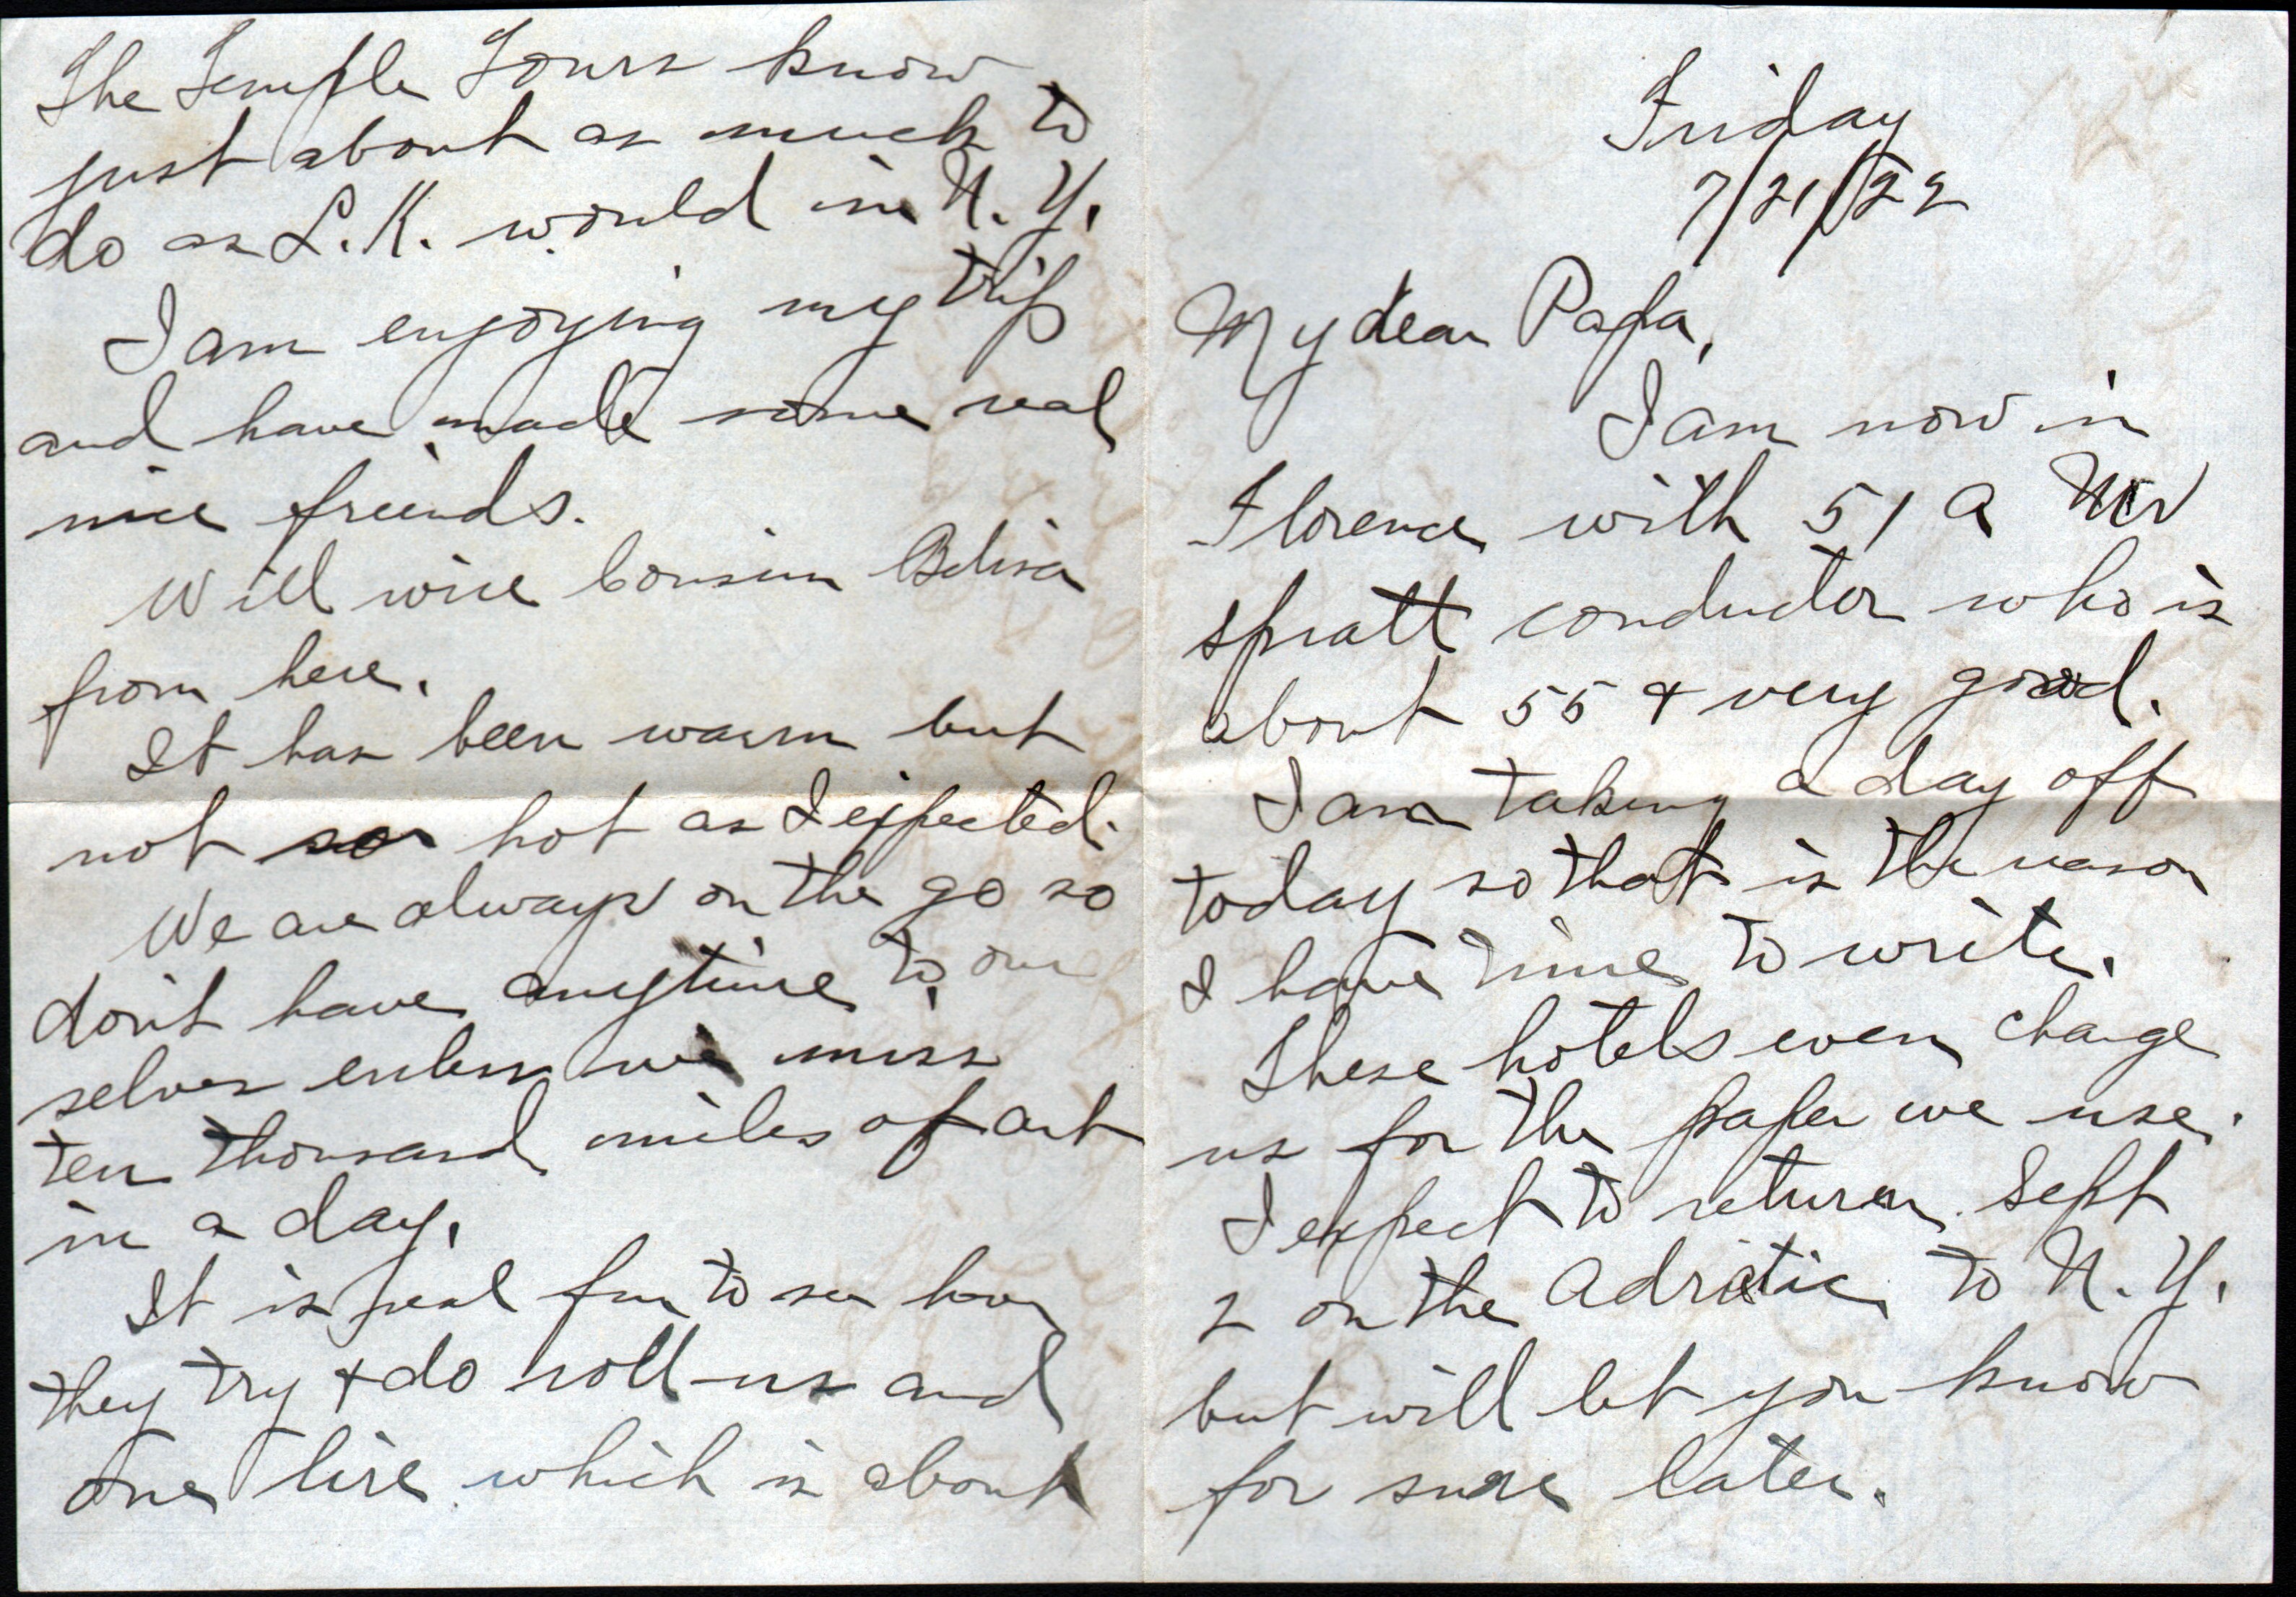 Friday
7/21/22
My dear Papa,
I am now in
Florence with 51 A Mr
Spratt conductor who is
about 55 & very good.
I am taking a day off
today so that is the reason
I have time to write.
These hotels even charge
us for the paper we use.
I expect to return Sept
2 on the Adriatic to N.Y.
but will let you know
for sure later.
The Temple Tours know
just about as much to
do as L.K. would in N.Y.
I am enjoying my trip
and have made some real
nice friends.
Will wire Cousin
from here.
It has been warm but
not so hot as I expected.
We are always on the go so
don't have anytime to our
selves enless we miss
ten thousand miles of art
in a day.
It is real fun to see how
they try & do roll us and
one lire which is about